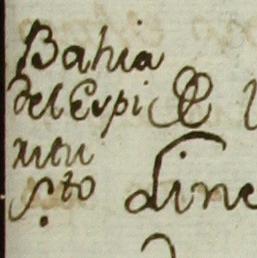 Bahia
del Espi
ritu
S.to
Line